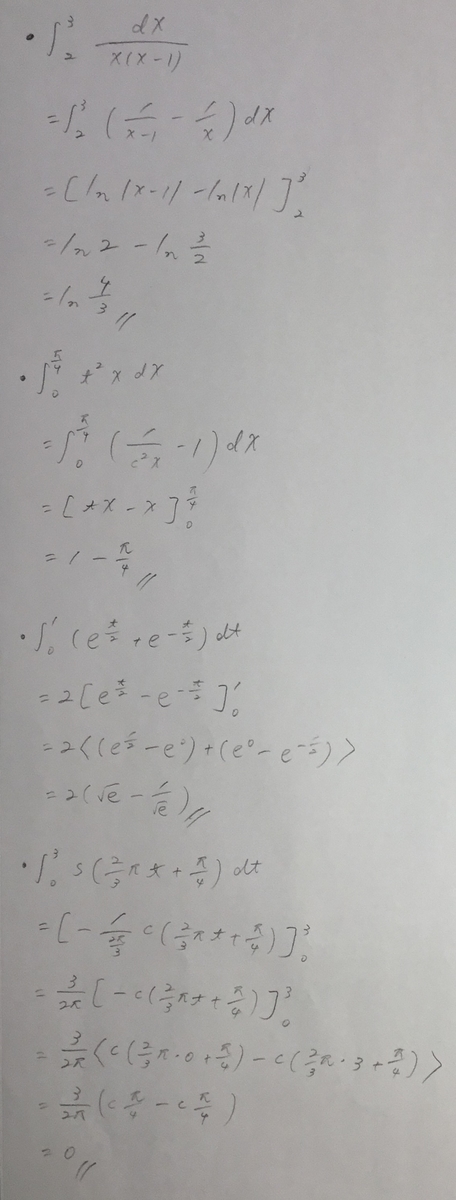 • ∫_2^3 dx/(x(x-1))
= ∫_2^3 (1/(x-1) - 1/x) dx
= [ln|x-1| - ln|x|]_2^3
= ln 2 - ln 3/2
= ln 4/3 //
• ∫_0^{π/4} t²x dx
= ∫_0^{π/4} (1/(c²x) - 1) dx
= [tx - x]_0^{π/4}
= 1 - π/4 //
• ∫_0^1 (e^{t/2} + e^{-t/2}) dt
= 2[e^{t/2} - e^{-t/2}]_0^1
= 2<(e^{1/2} - e^0) + (e^0 - e^{-1/2})>
= 2(√e - 1/√e) //
• ∫_0^3 s(2/3 πt + π/4) dt
= [-1/(2π/3) c(2/3 πt + π/4)]_0^3
= 3/2π [-c(2/3 πt + π/4)]_0^3
= 3/2π <c(2/3 π·0 + π/4) - c(2/3 π·3 + π/4)>
= 3/2π (c π/4 - c π/4)
= 0 //